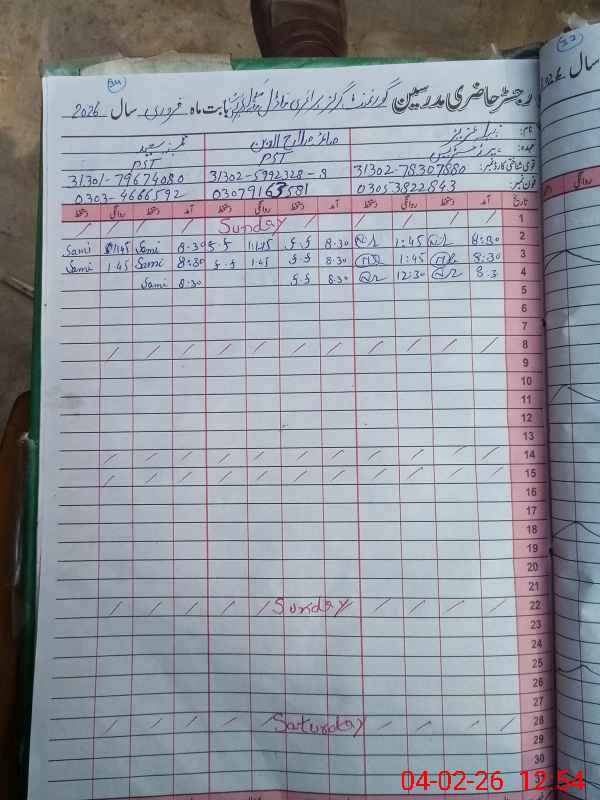 34
33
رجسٹر حاضری مدرسین گورنمنٹ گرلز پرائمری ماڈل بابت ماہ فروری سال 2026
سال 2026
نام:
عہدہ:
PST PST
قومی شناختی کارڈ نمبر: 31302-78307880 31302-5992328-8 31301-79674080
فون نمبر: 03053822843 03079163581 0303-4666592
تاریخ آمد دستخط روانگی دستخط آمد دستخط روانگی دستخط آمد دستخط روانگی دستخط
1 Sunday
2 8:30 1:45 8:30 1:45 8:30 Sami 1:45 Sami
3 8:30 1:45 8:30 1:45 8:30 Sami 1:45 Sami
4 8.3 12:30 8:30 8:30 Sami
5
6
7
8
9
10
11
12
13
14
15
16
17
18
19
20
21
22 Sunday
23
24
25
26
27
28 Saturday
29
30
31
04-02-26 12:54